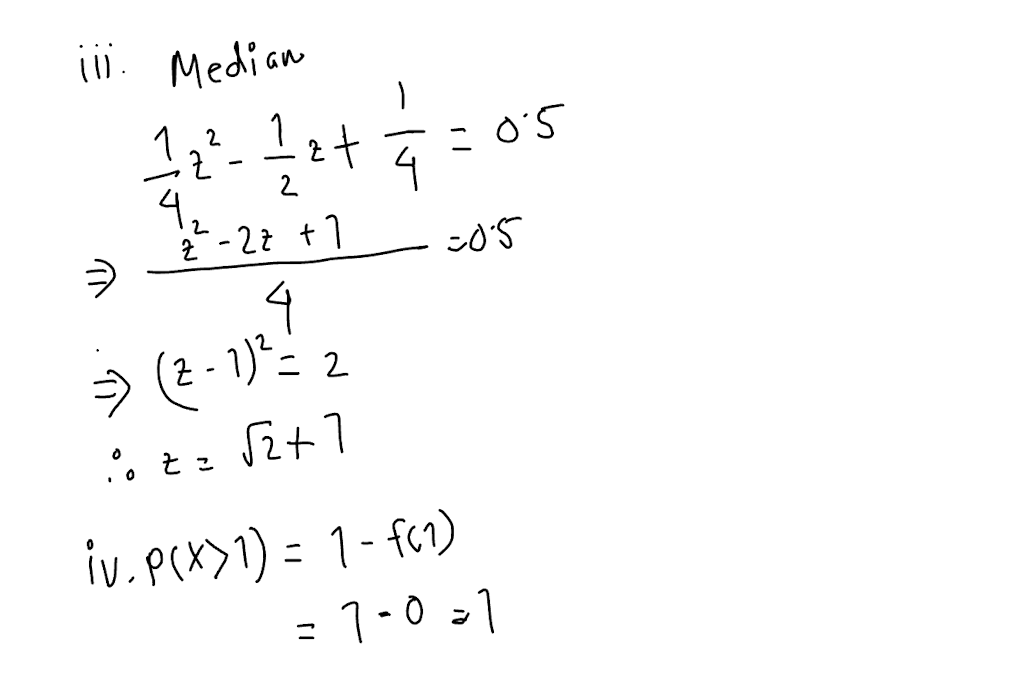 iii. Median
1/4 z² - 1/2 z + 1/4 = 0.5
⇒ (z² - 2z + 1)/4 = 0.5
⇒ (z - 1)² = 2
∴ z = √2 + 1
iv. P(X>1) = 1 - f(1)
= 1 - 0 = 1